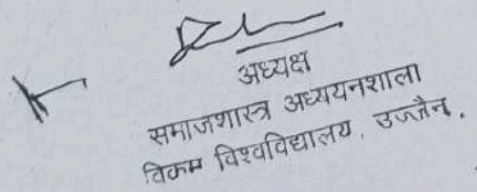 अध्यक्ष
समाजशास्त्र अध्ययनशाला
विक्रम विश्वविद्यालय, उज्जैन.